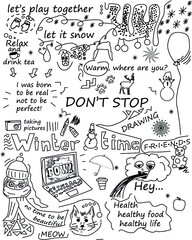 let's play together
let it snow
Relax
and
drink tea
Warm, where are you?
I was born
to be real
not to be
perfect!
DON'T STOP
DRAWING
taking
pictures
Winter time
FRIENDS
POW
Hey...
time to be
beautiful
MEOW
Health
healthy food
healthy life